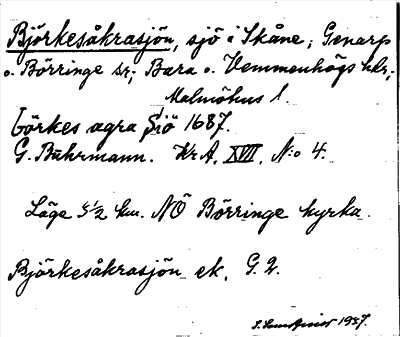 Björkesåkrasjön, sjö i Skåne; Genarp
o. Börringe sr; Bara o. Vemmenhögs hdr;
Malmöhus l.
Görkes agra Siö 1687.
G. Buhrmann. Kr A, XVII, N:o 4.
Läge 5 1/2 km. NÖ Börringe kyrka.
Björkesåkrasjön ek. G. 2.
1937.